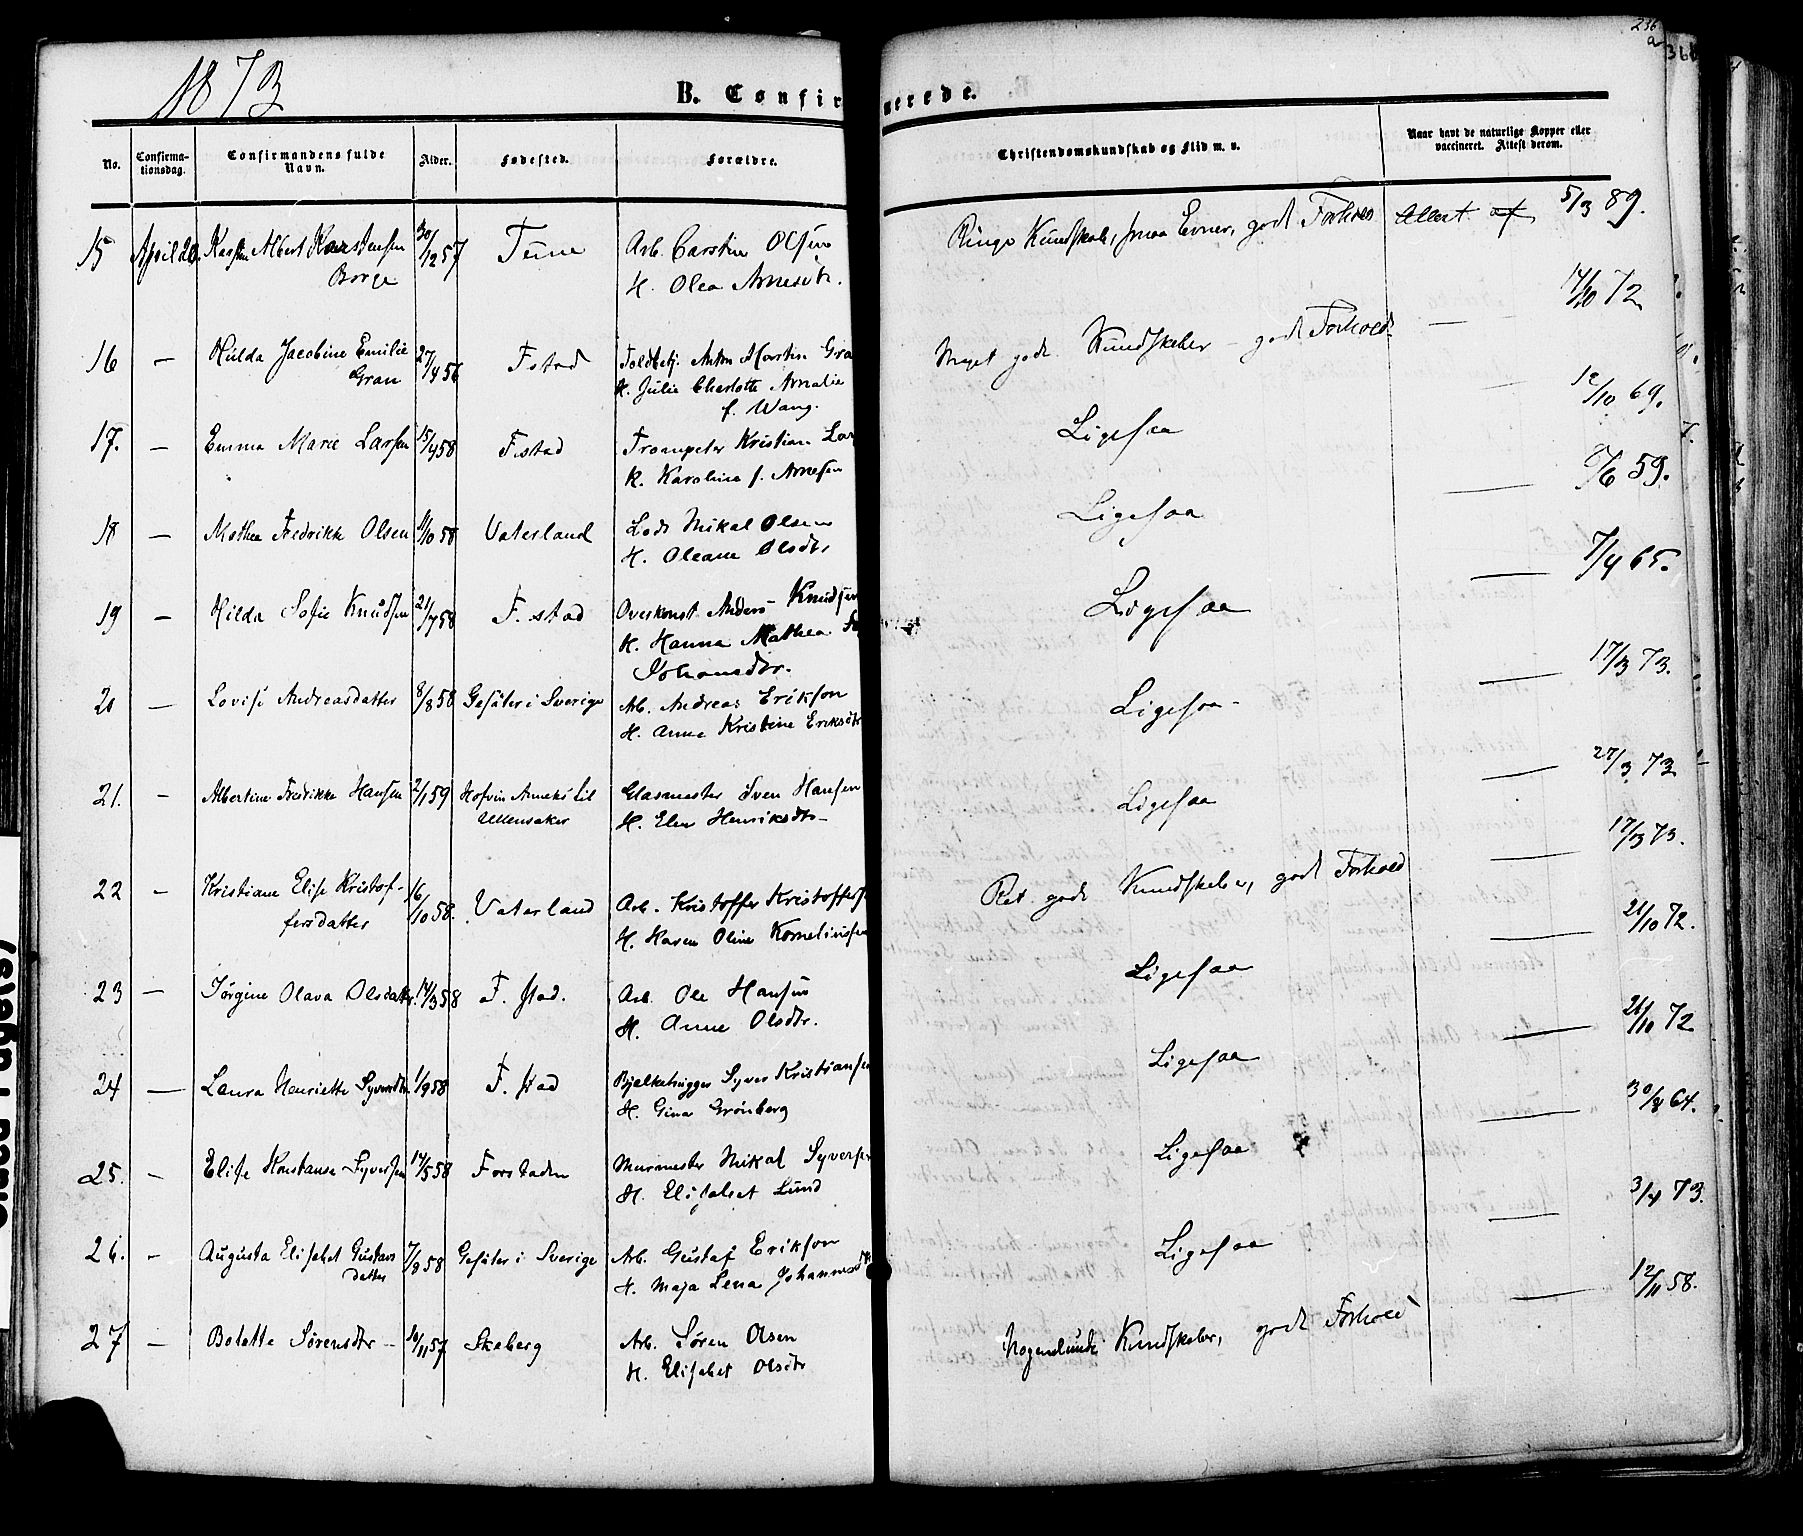 236
a
366
1873
B. Confir merede.
No.
Confirma-
tionsdag.
Confirmandens fulde
Navn.
Alder.
Fødested.
Forældre.
Christendomskundskab og Flid m. v.
Naar havt de naturlige Kopper eller
vaccineret. Attest derom.
15 April 20. Karsten Albert Karstensen 30/12 57 Tune Arb. Carsten Olsen Ringe Kundskab, smaa Evner, godt Forhold Attest af 5/3 89.
Borge H. Olea Arnesdtr.
16 — Hilda Jacobine Emilie 27/4 56 Fstad Toldbetj. Anton Martin Gra Meget gode Kundskaber – godt Forhold — 17/10 72
Gran H. Julie Charlotte Amalie
f. Wang.
17. — Emma Marie Larsen 15/4 58 F.stad Trompeter Kristian Lar Ligesaa — 12/10 69.
K. Karoline f. Arnesen
18 — Mathea Fredrikke Olsen 11/10 58 Vaterland Lods Mikal Olsen Ligesaa — /6 59.
H. Oleane Olsdtr
19 — Hilda Sofie Knudsen 21/7 58 F. stad Overkonst. Anders Knudsen Ligesaa — 7/4 65.
K. Hanna Mathea
Johansdtr.
20 — Lovise Andreasdatter 8/8 58 Gesäter i Sverige Arb. Andreas Erikson Ligesaa — 17/3 73.
H. Anna Kristine Eriksdtr
21. — Albertine Fredrikke Hansen 2/1 59 Hofvin Anneks til Glasmester Sven Hansen Ligesaa — 27/3 73
Ullensaker H. Elen Henriksdtr
22 — Kristiane Elise Kristof- 16/10 58. Vaterland Arb. Kristoffer Kristoffers Ret gode Kundskaber, godt Forhold — 17/3 73.
fersdatter H. Karen Oline Korneliusen
23 — Jørgine Olava Olsdatter. 14/3 58 F. stad. Arb. Ole Hansen Ligesaa — 21/10 72.
H. Anne Olsdtr.
24 — Laura Henriette Syversdtr. 1/9 58 F. stad Bjelkehugger Syver Kristiansen Ligesaa — 21/10 72
H. Gina Grønberg
25. — Elise Konstanse Syversen 14/5 58 Forstaden Murmester Mikal Syversen Ligesaa — 30/8 64.
H. Elisabet Lund
26. — Augusta Elisabet Gustavs 7/8 58 Gesäter i Sverige Arb. Gustaf Erikson Ligesaa — 3/4 73.
datter H. Maja Lena Johannesdtr
27 — Bolette Sørensdtr — 10/11 57 Skeberg Arb. Søren Olsen Nogenlunde Kundskaber, godt Forhold — 12/11 58.
H. Elisabet Olsdtr